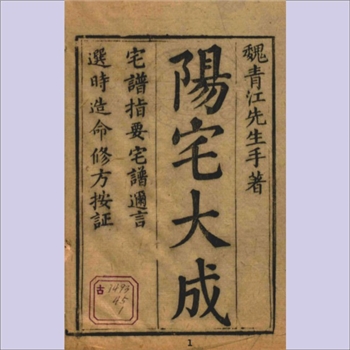 魏青江先生手著
陽宅大成
宅譜指要宅譜邇言
選時造命修方按証
古
1494
45
1
1